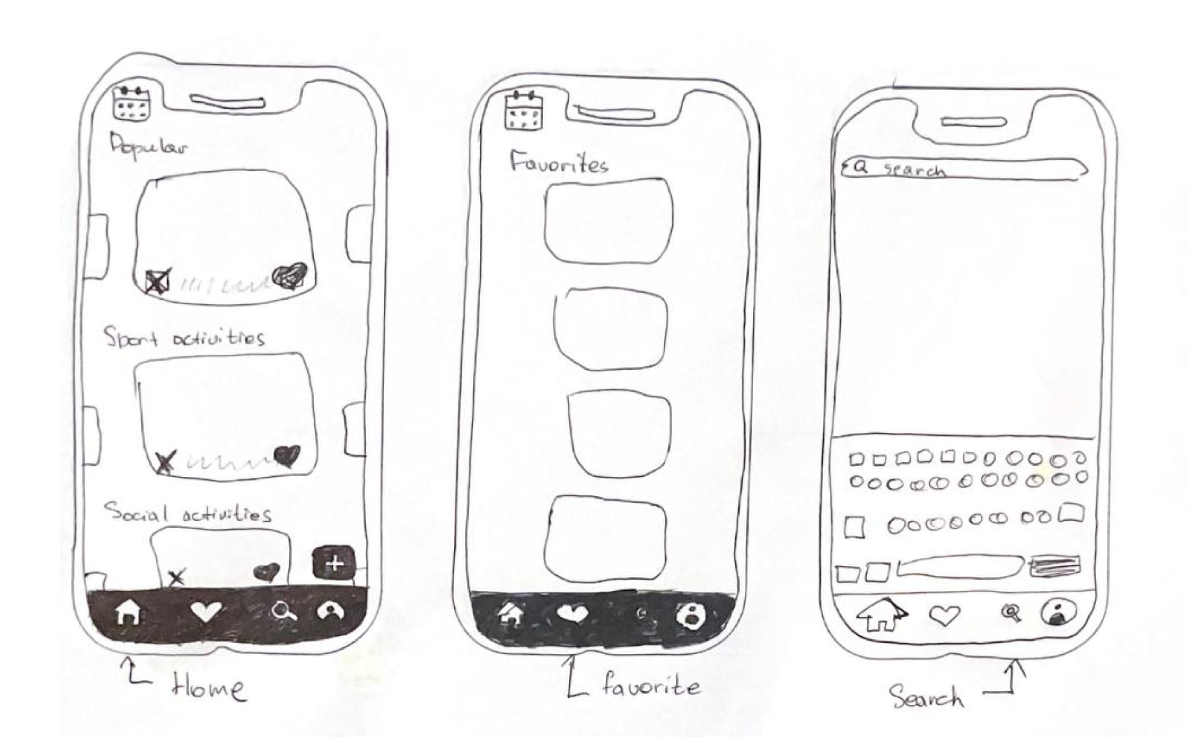 Popular
Sport activities
Social activities
+
Home
Favorites
favorite
search
Search